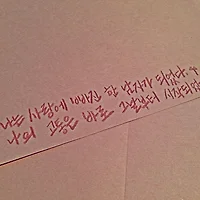 나는 사랑에 빠진 한 남자가 되었다. 나
의 고통은 바로 그로부터 시작되었